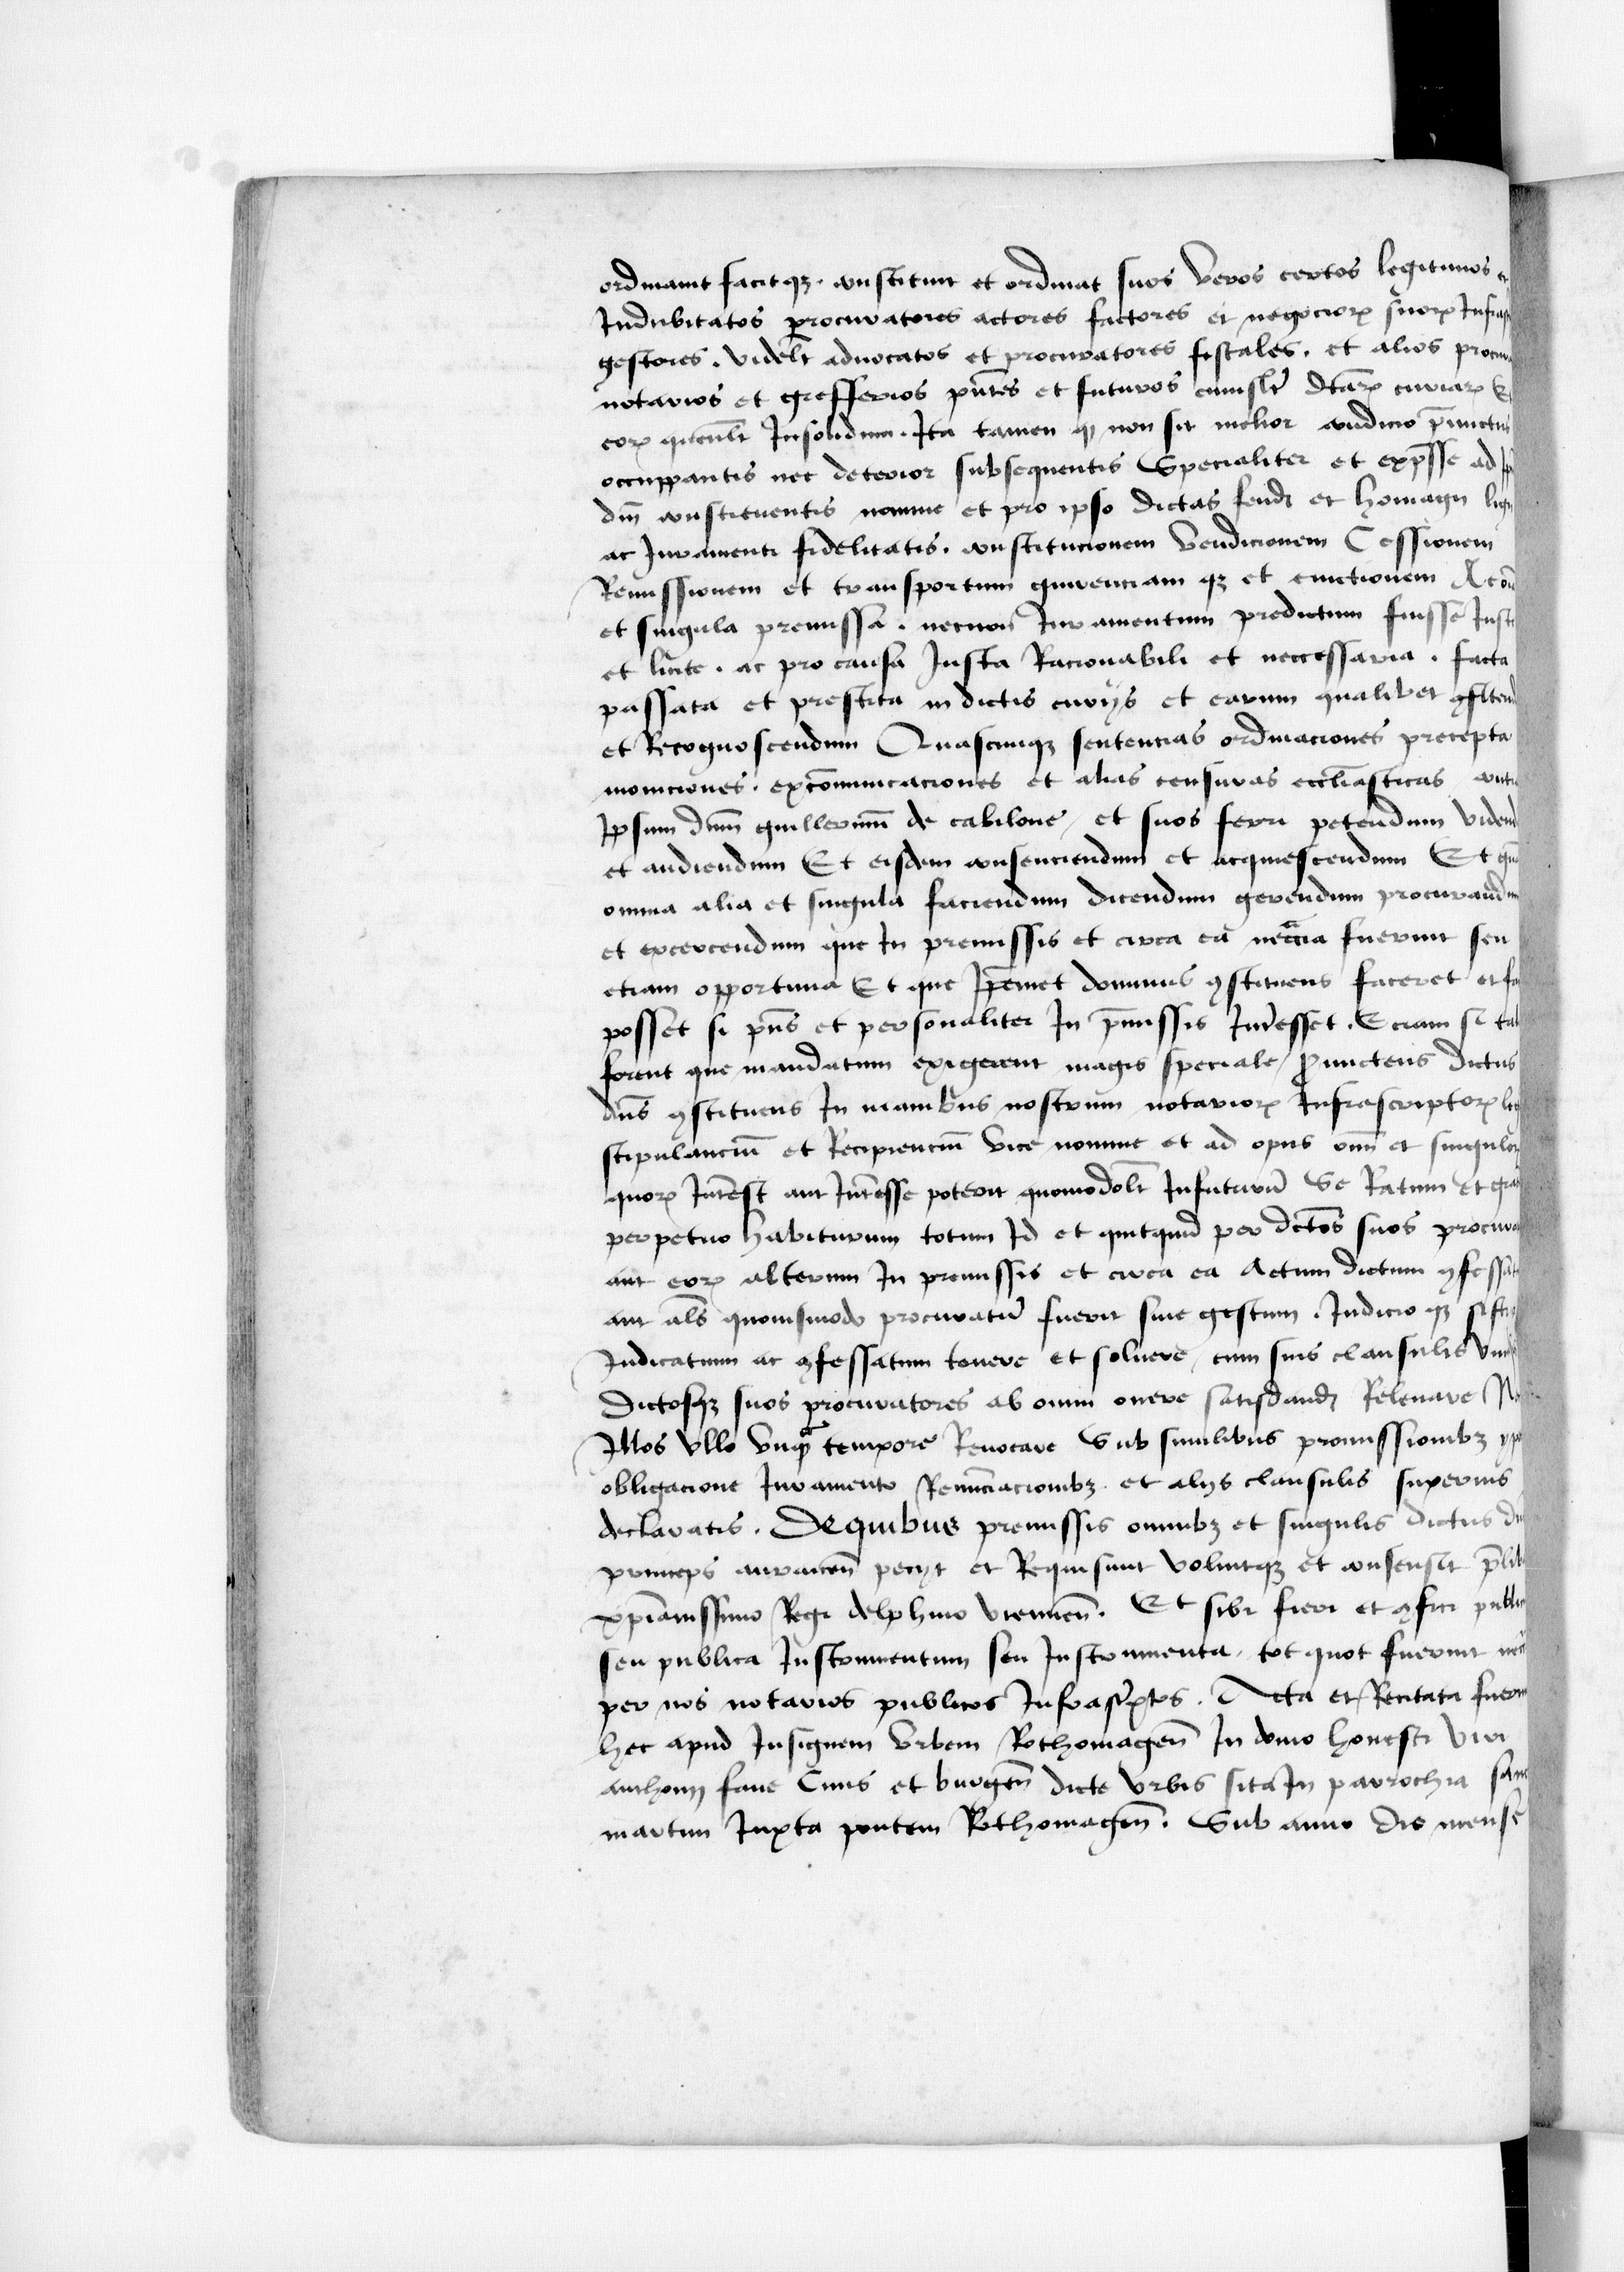 ordinauit facitqz. constituit et ordinat suos veros certos legitimos et
Indubitatos procuratores actores factores et negociorꝝ suorꝝ Infrasc
gestores. videlt aduocatos et procuratores fiscales. et alios procura
notarios et greffferios pntes et futuros cuiuslt dtarꝝ curiarꝝ Et
eorꝝ quemlt Insolidum. Ita tamen qz non sit melior condicio primitus
occuppantis nec deterior subsequentis Specialiter et expsse ad Ip
dni constituentis nomine et pro ipso dictas feudi et homagii ligii
ac Iuramenti fidelitatis. constitucionem Vendicionem Cessionem
Remissionem et transportum guirenciam qz et euictionem Ac oia
et singula premissa. necnon Iuramentum predictum fuisse Iuste
et licite. ac pro causa Iusta Racionabili et neccessaria. facta
passata et prestita in dictis curiis et earum qualibet ꝯfitend
et Recognoscendum Quascumqz sentencias ordinaciones precepta
moniciones. excommunicaciones et alias censuras ecclesiasticas contra
Ipsum dnm guillermum de cabilone, et suos ferri petendum Vidend
et audiendum Et eisdem consenciendum et acquiescendum Et
omnia alia et singula faciendum dicendum gerendum procurandum
et excercendum que In premissis et circa ea neccia fuerint seu
etiam opportuna Et que Ipemet dominus ꝯstituens faceret et fa
posset si pns et personaliter In pmissis Intesset. Eciam si tal
forent que mandatum exigerent magis speciale, Pmictens dictus
dns ꝯstituens In manibus nostrum notariorꝝ Infrascriptorꝝ
stipulancium et Recipiencium Vice nomine et ad opus oium et singulor
quorꝝ Interest aut Interesse poterit quomodolt Infuturum Se Ratum et gra
perpetuo habiturum totum Id et quitquid per dctos suos procura
aut eorꝝ alterum In premissis et circa ea Actum dictum ꝯfessat
aut als quouismodo procuratum fuerit siue gestum. Iudicio qz sisti
Iudicatum ac ꝯfessatum tenere et soluere, cum suis clausulis Vni
Dictosqz suos procuratores ab omni onere satisdandi Releuare Ne
Illos Vllo Vnqua tempore Reuocare Sub similibus promissionibz
obligacione Iuramento Renunciacionibz. et aliis clausulis superius
declaratis. De quibus premissis omnibz et singulis dictus
princeps auraicen peciit et Requisiuit Voluitqz et consensit
xpianissimo Regi delphino viennen. Et sibi fieri et ꝯfici public
seu publica Instrumentum seu Instrumenta, tot quot fuerint
per nos notarios publicos Infrascptos. Acta et Recitata fuerunt
hec apud Insignem Vrbem Rothomagen In domo honesti Viri
anthonii faue Ciuis et burgen dicte Vrbis sita In parrochia sanc
martini Iuxta pontem Rothomagen. Sub anno die mense